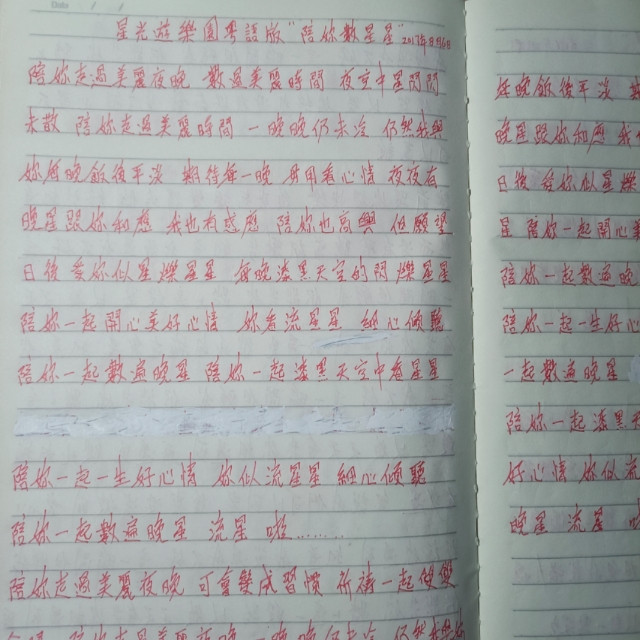 Date / /
星光遊樂園粵語版"陪你數星星"2017年8月6日
陪你走過美麗夜晚 數過美麗時間 夜空中星閃閃
未散 陪你走過美麗時間 一晚晚仍未冷 仍然我與
你每晚飯後平淡 期待每一晚 心情 夜夜有
晚星跟你和應 我也有感應 陪你也高興 但願望
日後 愛你似星爍星星 每晚漆黑天空的閃爍星星
陪你一起開心美好心情 你看流星星 細心傾聽
陪你一起數遍晚星 陪你一起漆黑天空中看星星
陪你一起一生好心情 你似流星星 細心傾聽
陪你一起數遍晚星 流星 啦………
陪你走過美麗夜晚 可會變成習慣 祈禱一起
陪你走過美麗夜晚 一晚晚仍未冷 仍然
每晚飯後平淡
晚星跟你和應 我
日後 愛你似星爍
星 陪你一起開心
陪你一起數遍晚
陪你一起一生好心
一起數遍晚星
陪你一起漆黑
好心情 你似
晚星 流星